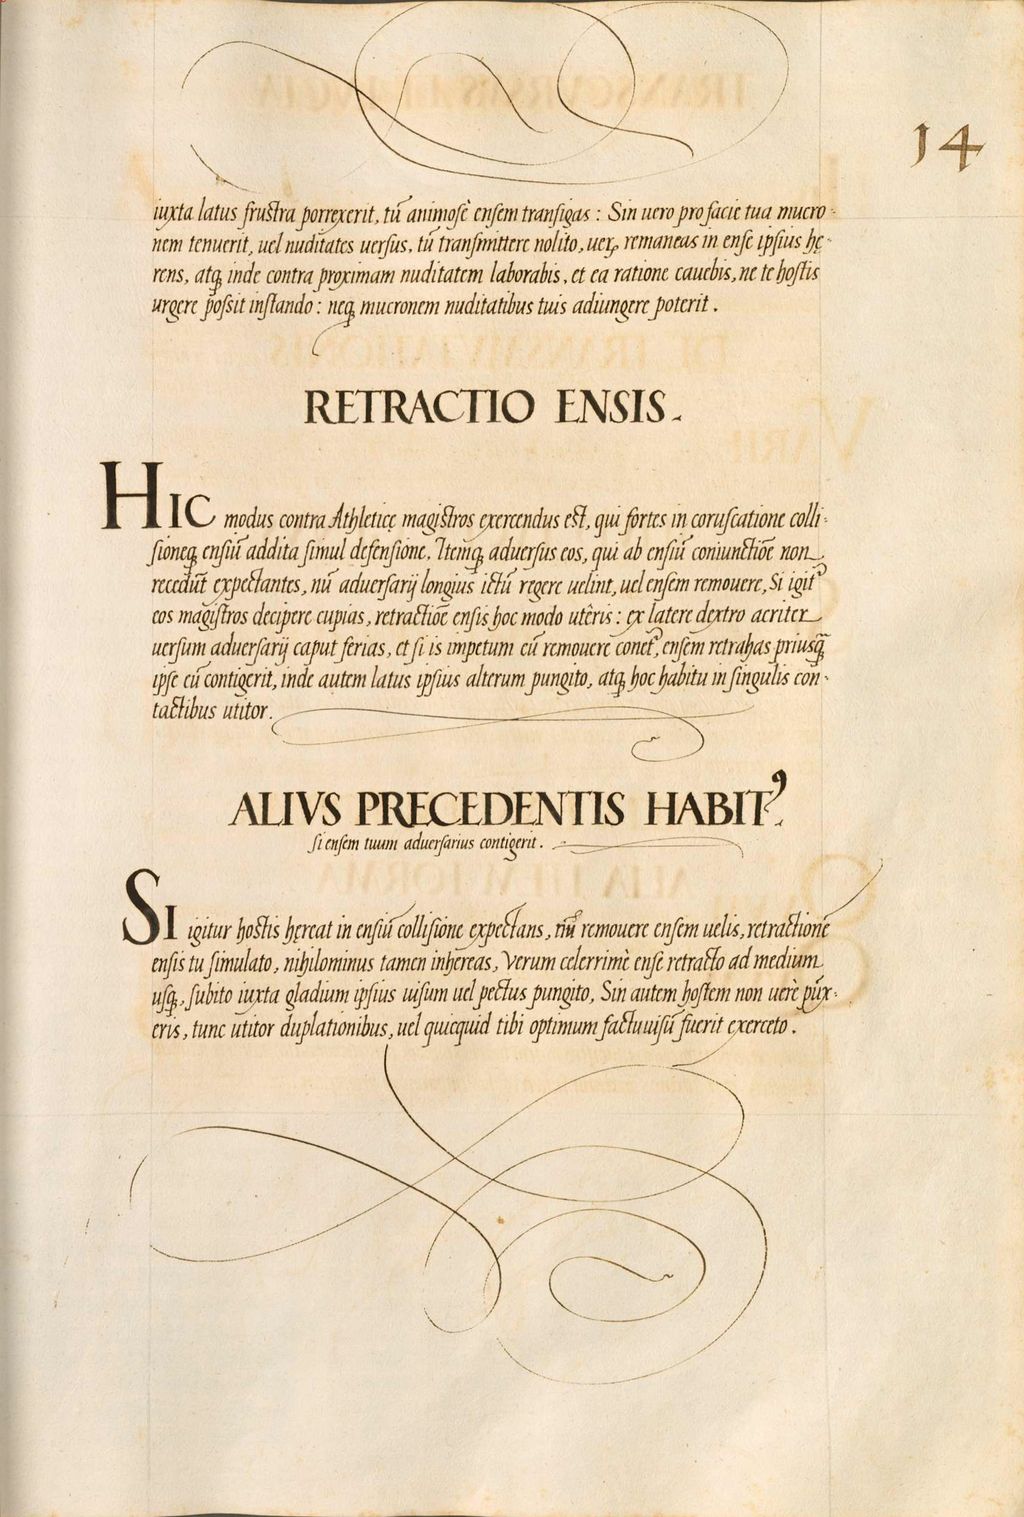 14
iuxta latus frustra porrexerit, tũ animosè ensem transigas : Sin uero pro facie tua mucro-
nem tenuerit, uel nuditates uersus, tũ transmittere nolito, uerũ remaneas in ense ipsius hę-
rens, atq; inde contra proximam nuditatem laborabis, et ea ratione cauebis, ne te hostis
urgere possit instando : neq; mucronem nuditatibus tuis adiungere poterit .
RETRACTIO ENSIS.
HIC modus contra Athleticę magistros exercendus est, qui fortes in coruscatione colli-
sioneq; ensiũ addita simul defensione. Itemq; aduersus eos, qui ab ensiũ coniunctiõe non
recedũt expectantes, nũ aduersarij longius ictũ regere uelint, uel ensem remouere, Si igit᷑
eos magistros decipere cupias, retractiõe ensis hoc modo utêris : ex latere dextro acriter
uersum aduersarij caput ferias, et si is impetum eũ remouere conet᷑, ensem retrahas priusq̃
ipse eũ contigerit, inde autem latus ipsius alterum pungito, atq; hoc habitu in singulis con-
tactibus utitor.
ALIVS PRECEDENTIS HABITꝰ.
si ensem tuum aduersarius contigerit .
SI igitur hostis hęreat in ensiũ collisione expectans, nũ remouere ensem uelis, retractionẽ
ensis tu simulato, nihilominus tamen inhęreas, Verum celerrimè ense retracto ad medium
usq;, subito iuxta gladium ipsius uisum uel pectus pungito, Sin autem hostem non uerè pũx-
eris, tunc utitor duplationibus, uel quicquid tibi optimum factu uisũ fuerit exerceto .